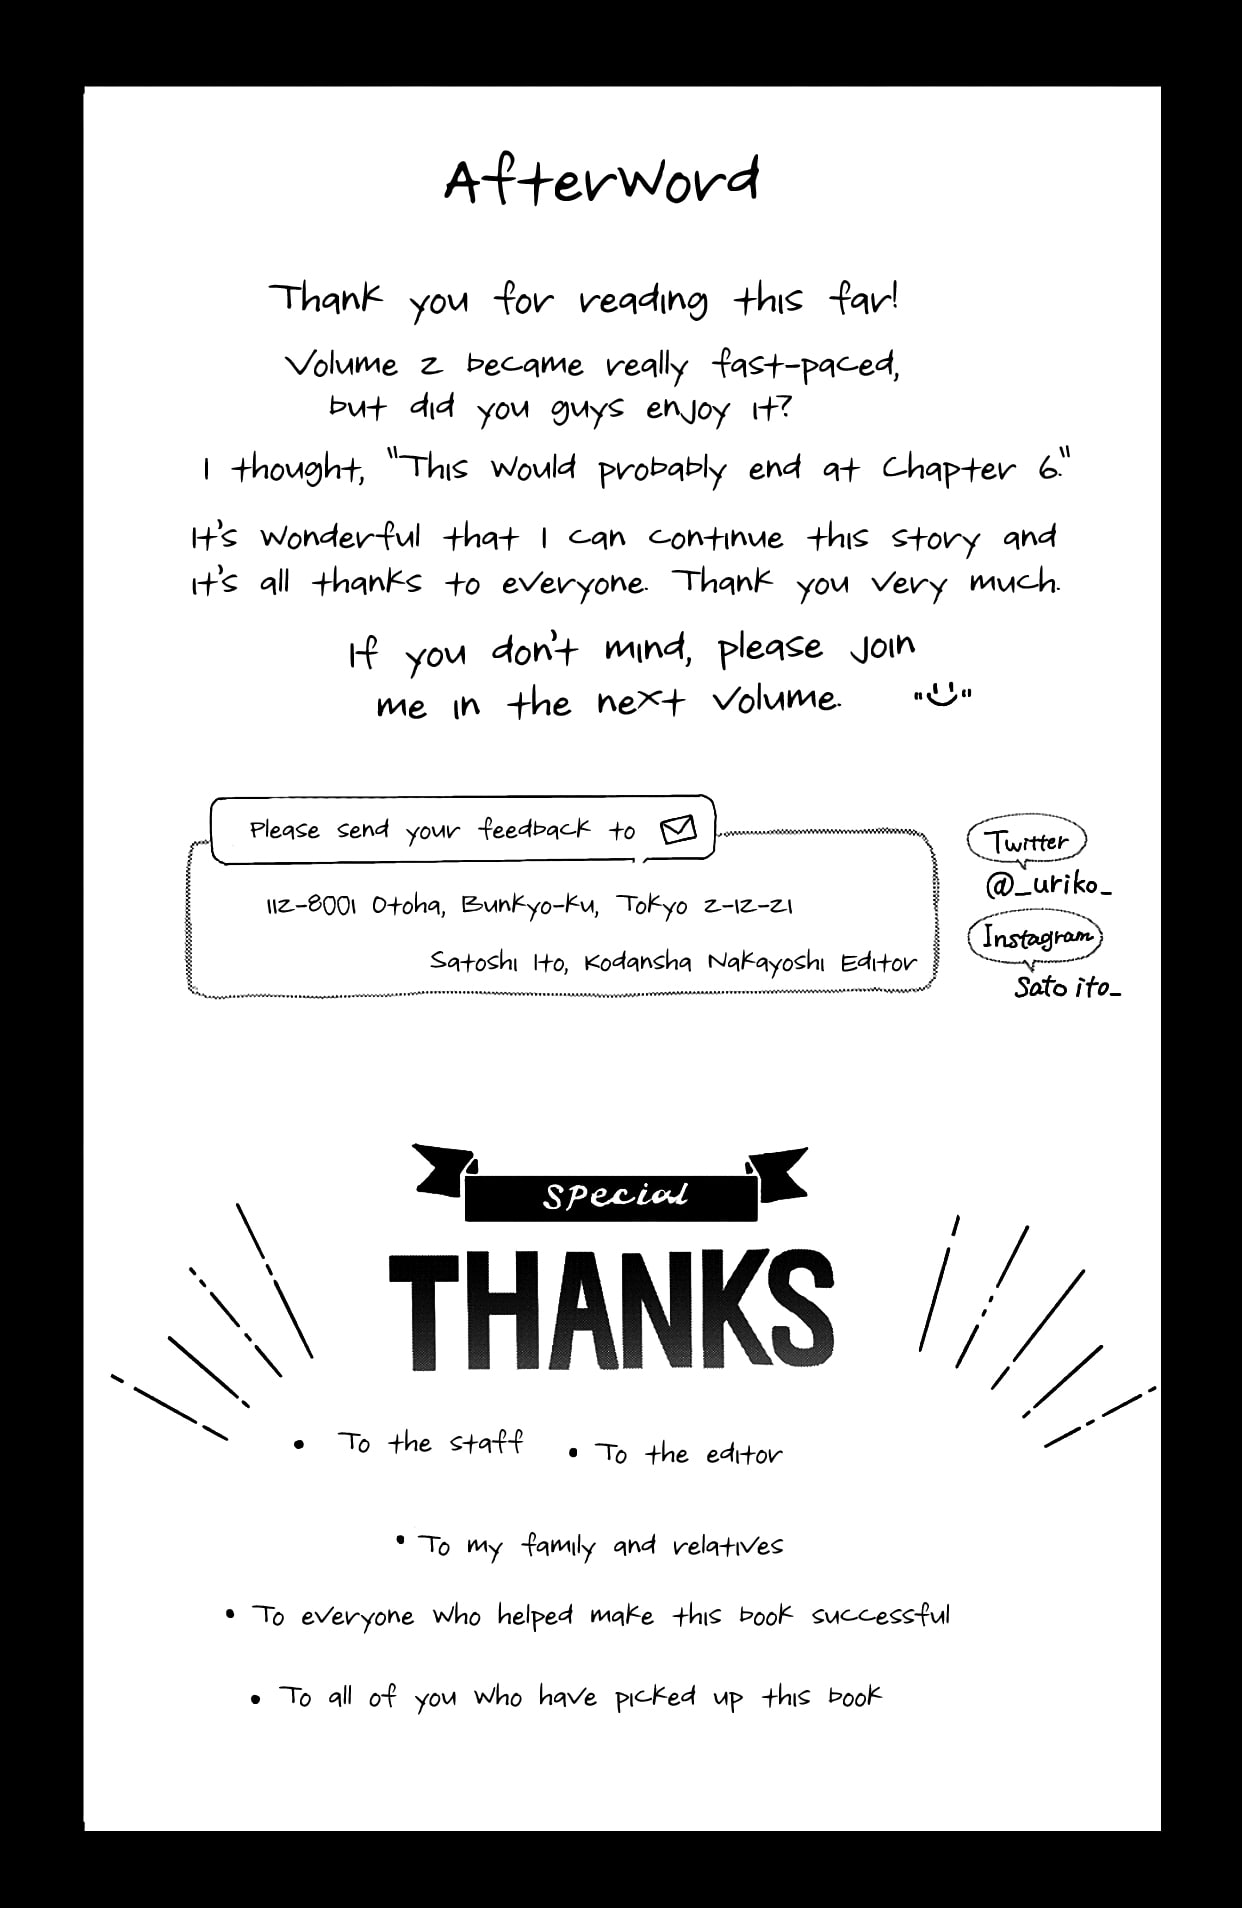 Afterword
Thank you for reading this far!
Volume 2 became really fast-paced,
but did you guys enjoy it?
I thought, "This would probably end at Chapter 6."
It's wonderful that I can continue this story and
it's all thanks to everyone. Thank you very much.
If you don't mind, please join
me in the next volume.
Please send your feedback to
112-8001 Otoha, Bunkyo-Ku, Tokyo 2-12-21
Satoshi Ito, Kodansha Nakayoshi Editor
Twitter
@_uriko_
Instagram
Sato ito_
Special
THANKS
• To the staff
• To the editor
• To my family and relatives
• To everyone who helped make this book successful
• To all of you who have picked up this book